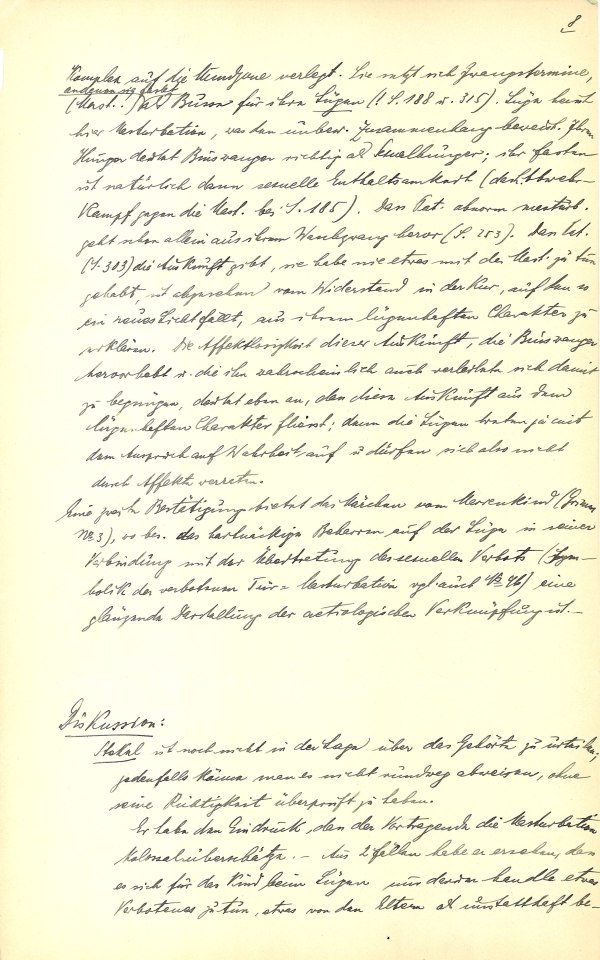 8
Komplex auf die Mundzone verlegt. Sie setzt sich Zwangstermine,
an denen sie fastet
(Mast.!) als Busse für ihre Lügen (! S. 188 u. 315). Lüge heisst
hier Masturbation, was den unbew. Zusammenhang beweist. Ihren
Hunger deutet Binswanger richtig als Sexualhunger; ihr Fasten
ist natürlich dann sexuelle Enthaltsamkeit (das Abwehr-
Kampf gegen die Mast. bei S. 185). Dass Pat. abnorm masturb.
geht schon allein aus ihrem Waschzwang hervor (S. 253). Dass Pat.
(S. 303) die Auskunft gibt, sie habe nie etwas mit der Mast. zu tun
gehabt, ist abgesehen vom Widerstand in der Kur, auf den so
ein neues Licht fällt, aus ihrem lügenhaften Charakter zu
erklären. Die Affektlosigkeit dieser Auskunft, die Binswanger
hervorhebt u. die ihn wahrscheinlich auch verleitete sich damit
zu begnügen, deutet eben an, dass diese Auskunft aus dem
lügenhaften Charakter fliesst; denn die Lügen treten ja mit
dem Anspruch auf Wahrheit auf u dürfen sich also nicht
durch Affekte verraten.
Eine zweite Bestätigung bietet das Märchen vom Marienkind (Grimm
No 3), wo bes. das hartnäckige Beharren auf der Lüge in seiner
Verbindung mit der Übertretung des sexuellen Verbots (Sym-
bolik der verbotenen Tür = Masturbation vgl. auch No 46) eine
glänzende Darstellung der aetiologischen Verknüpfung ist. –
Diskussion:
Stekel ist noch nicht in der Lage über das Gehörte zu urteilen;
jedenfalls könne man es nicht rundweg abweisen, ohne
seine Richtigkeit überprüft zu haben.
Er habe den Eindruck, dass der Vortragende die Masturbation
kolossal überschätze. – Aus 2 Fällen habe er ersehen, dass
es sich für das Kind beim Lügen nur darum handle etwas
Verbotenes zu tun, etwas von den Eltern als unstatthaft be-